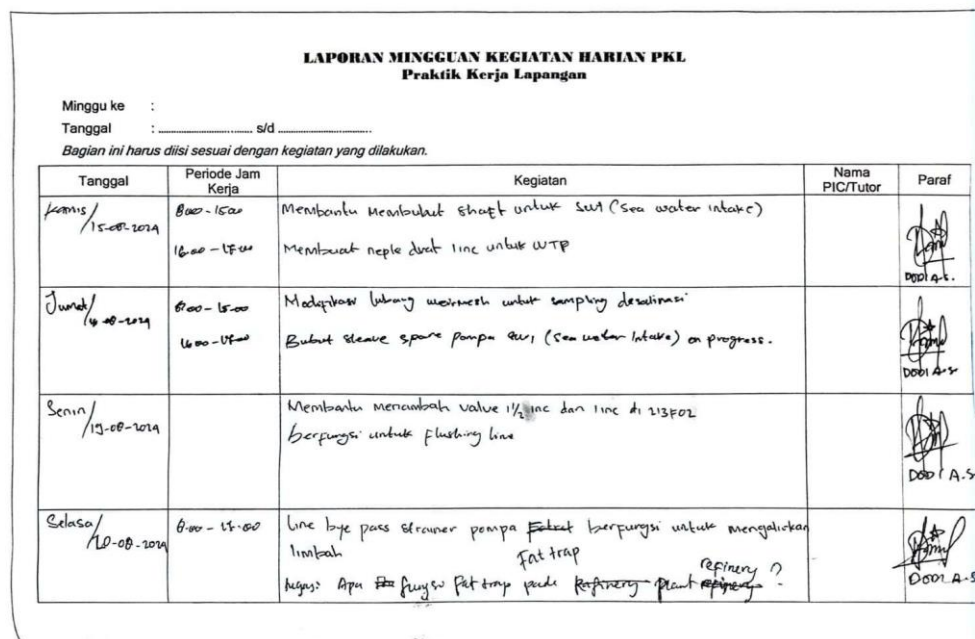 LAPORAN MINGGUAN KEGIATAN HARIAN PKL
Praktik Kerja Lapangan
Minggu ke :
Tanggal : .................... s/d ....................
Bagian ini harus diisi sesuai dengan kegiatan yang dilakukan.
Tanggal Periode Jam Kerja Kegiatan Nama PIC/Tutor Paraf
Kamis/15-08-2024 8:00 - 15:00 Membantu Membubut shaft untuk SWI (Sea water intake)
16:00 - 17:00 Membuat neple drat 1 inc untuk WTP
DODI A.S.
Jumat/ -08-2024 8:00 - 15:00 Modifikasi lubang weirmesh untuk sampling desalinasi
16:00 - 17:00 Bubut sleave spare pompa SWI (Sea water Intake) on progress.
DODI A.S
Senin/19-08-2024 Membantu Menambah value 1 1/2 inc dan 1 inc di 213F02
berfungsi untuk flushing line
DODI A.S
Selasa/20-08-2024 8:00 - 17:00 line bye pass strainer pompa berfungsi untuk mengalirkan
limbah Fat trap
tugas: Apa fungsi Fat trap pada plant refinery ?
DODI A.S